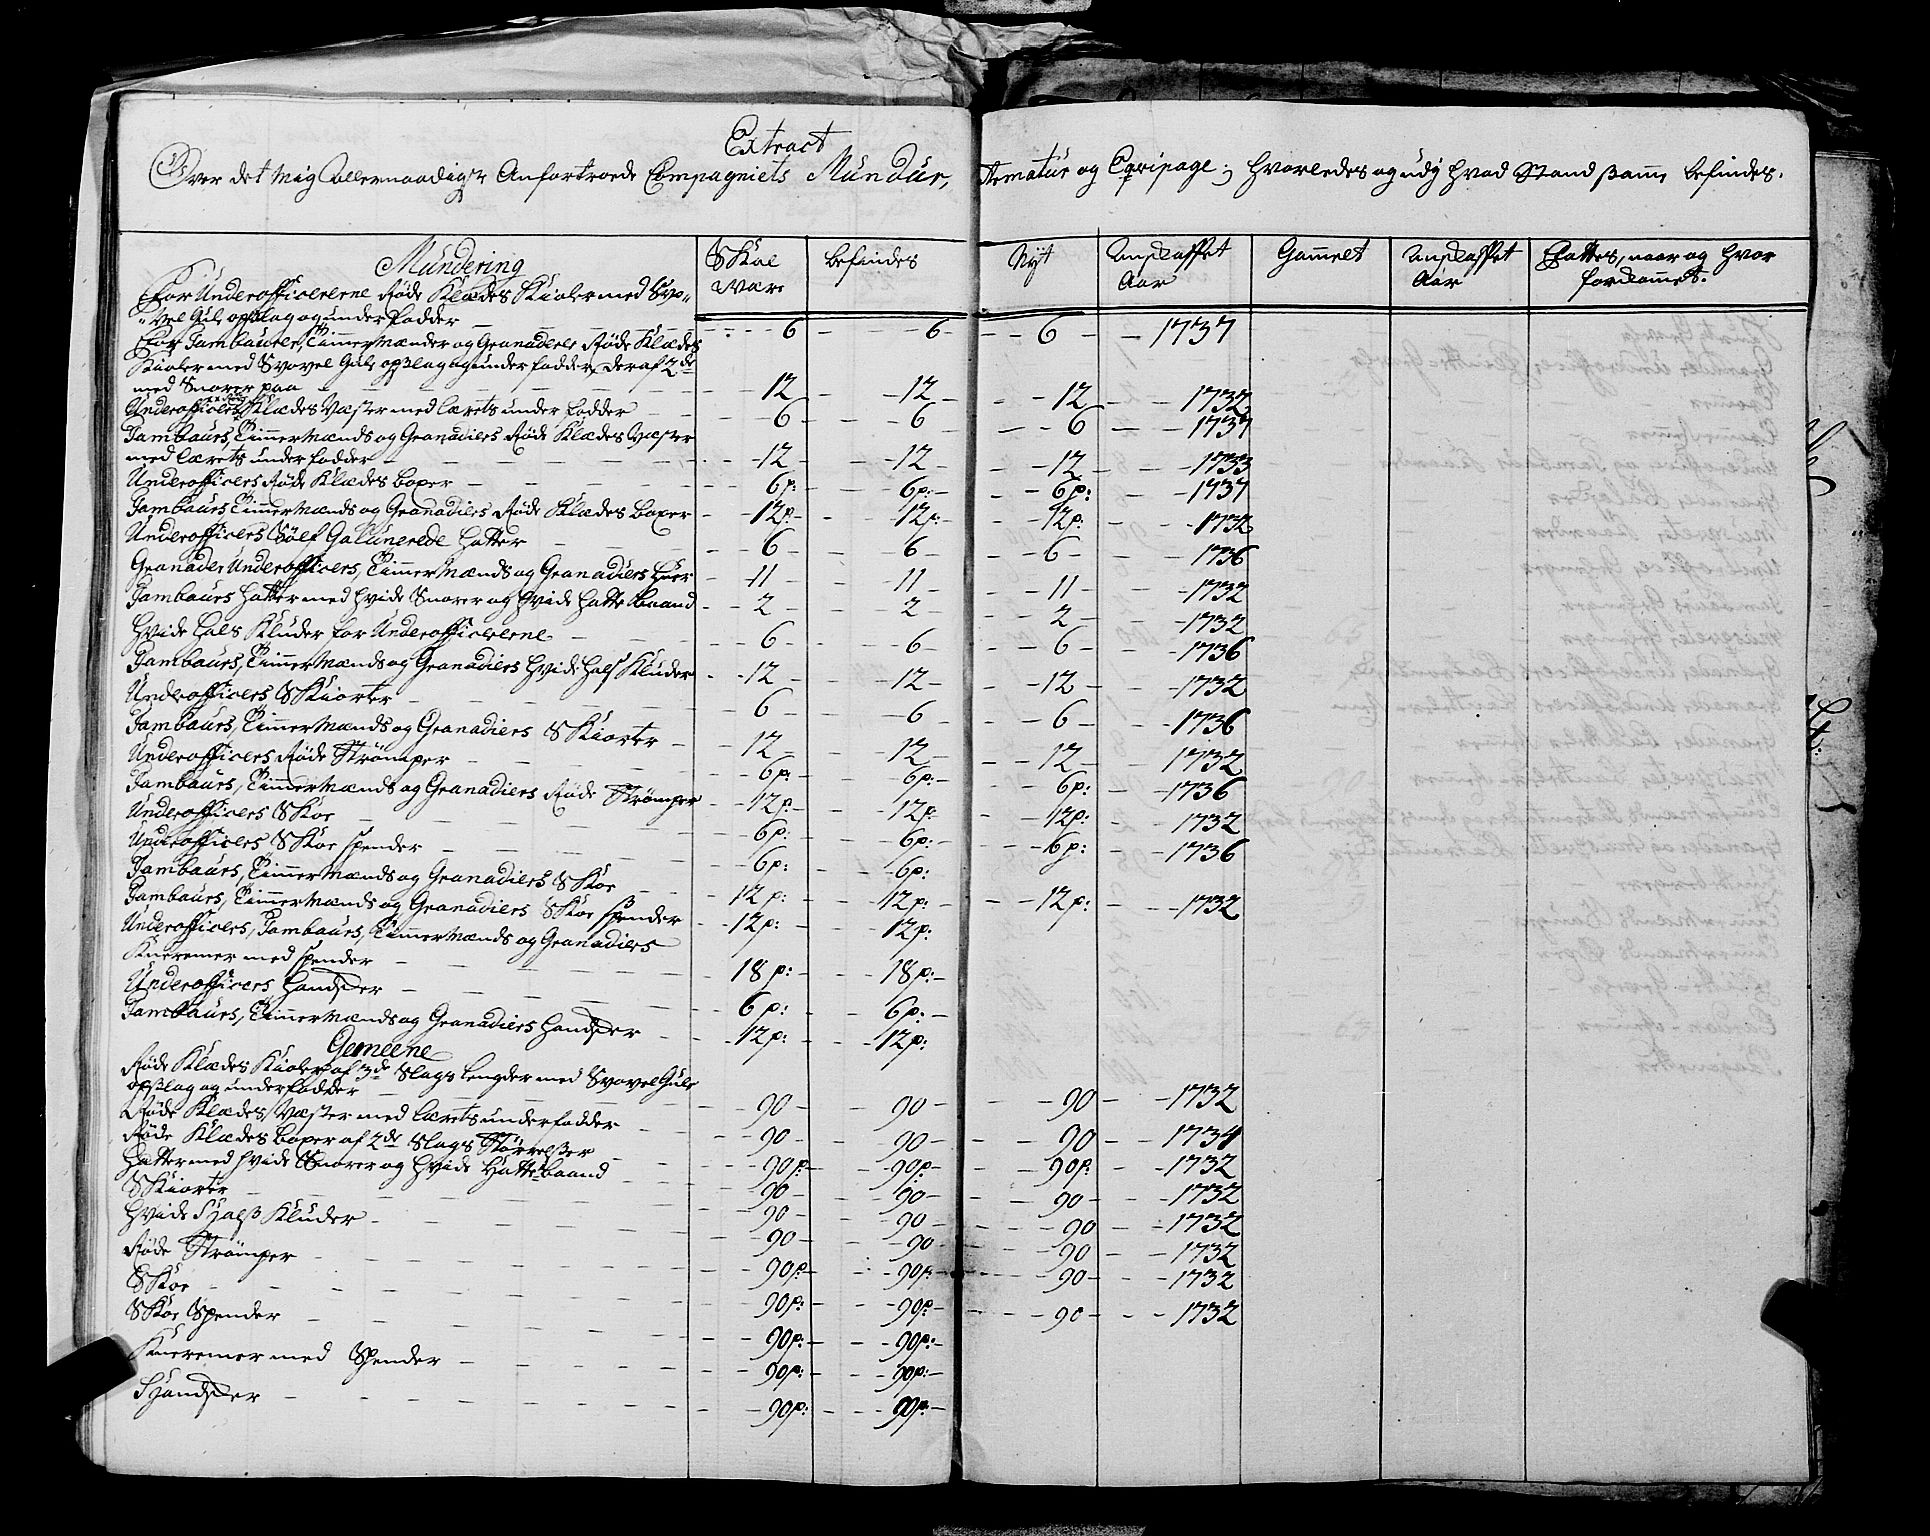 Extract
Over det mig Allernaadigst Anfortroede Compagniets Mundur, Armatur og Eqvipage; hvorledes og udj hvad Stand ßamme befindes.
Mundering | Skal være | befindes | Nyt | Anskaffet Aar | Gammelt | Anskaffet Aar | Fattes, naar og hvor forkommet.
For Underofficererne Røde Klædes Kioler med Svo-
vel Gule opslag og underfodder — 6 — 6 — 6 — 1737
For Tambourer, Timmermænder og Granaderer Røde Klædes
Kioler med Svovel Gule opslag og underfodder, deraf 2de
med Snorer paa — 12 — 12 — 12 — 1732
Underofficers Klædes Væster med lærets underfodder — 6 — 6 — 6 — 1737
Tambaurs, Timmermænds og Granadiers Røde Klædes Væster
med lærets underfodder — 12 — 12 — 12 — 1733
Underofficers Røde Klædes boxer — 6p: — 6p: — 6p: — 1737
Tambaurs Timmermænds og Granadiers Røde Klædes boxer — 12p: — 12p: — 12p: — 1732
Underofficers Sølf Galunerede hatter — 6 — 6 — 6 — 1736
Granader Underofficers, Timmermænds og Granadiers huer — 11 — 11 — 11 — 1732
Tambaurs hatter med hvide Snorer og hvide hatte baand — 2 — 2 — 2 — 1732
Hvide hals Kluder for Underofficererne — 6 — 6 — 6 — 1736
Tambaurs, Timmermænds og Granadiers hvide hals Kluder — 12 — 12 — 12 — 1732
Underofficers Skiorter — 6 — 6 — 6 — 1736
Tambaurs, Timmermænds og Granadiers Skiorter — 12 — 12 — 12 — 1732
Underofficers Røde Strømper — 6p: — 6p: — 6p: — 1736
Tambaurs, Timmermænds og Granadiers Røde Strømper — 12p: — 12p: — 12p: — 1732
Underofficers Skoe — 6p: — 6p: — 6p: — 1736
Underofficers Skoe spender — 6p: — 6p:
Tambaurs, Timmermænds og Granadiers Skoe — 12p: — 12p: — 12p: — 1732
Tambaurs, Timmermænds og Granadiers Skoe spender — 12p: — 12p:
Underofficers, Tambaurs, Timmermænds og Granadiers
Knæremer med spender — 18p: — 18p:
Underofficers handsker — 6p: — 6p:
Tambaurs, Timmermænds og Granadiers handsker — 12p: — 12p:
Gemeene
Røde Klædes Kioler af 3de Slags lengder med Svovel Gule
opslag og underfodder — 90 — 90 — 90 — 1732
Røde Klædes Væster med lærets underfodder — 90 — 90 — 90 — 1734
Røde Klædes boxer af 2de Slags Størrelßer — 90p: — 90p: — 90p: — 1732
Hatter med hvide Snorer og hvide Hatte baand — 90 — 90 — 90 — 1732
Skiorter — 90 — 90 — 90 — 1732
Hvide Halß Kluder — 90 — 90 — 90 — 1732
Røde Strømper — 90p: — 90p: — 90 — 1732
Skoe — 90p: — 90p: — 90 — 1732
Skoe Spender — 90p: — 90p:
Knæremer med Spender — 90p: — 90p:
Handsker — 90p: — 90p: